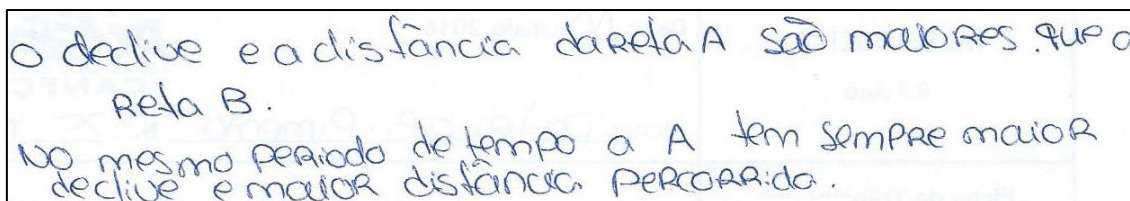 O declive e a distância da reta A são maiores que a
reta B.
No mesmo periodo de tempo a A tem sempre maior
declive e maior distância percorrida.